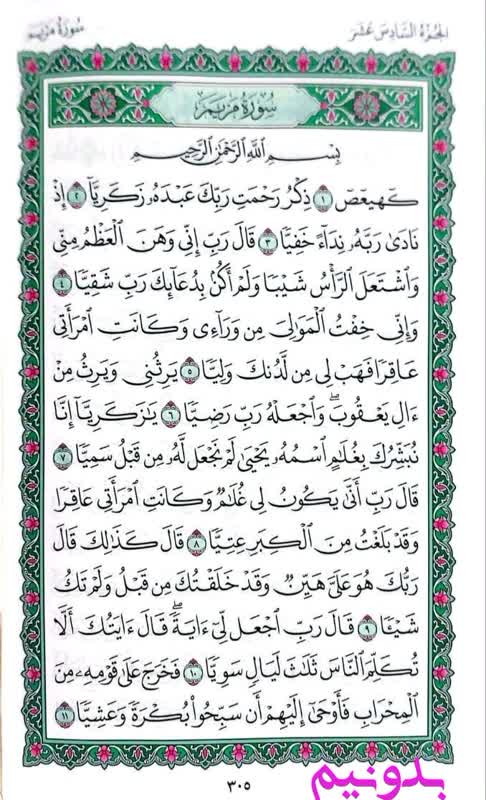 الجزء السادس عشر
سورة مريم
سورة مريم
بِسْمِ ٱللَّهِ ٱلرَّحْمَٰنِ ٱلرَّحِيمِ
كٓهيعٓصٓ ١ ذِكْرُ رَحْمَتِ رَبِّكَ عَبْدَهُۥ زَكَرِيَّآ ٢ إِذْ
نَادَىٰ رَبَّهُۥ نِدَآءً خَفِيًّا ٣ قَالَ رَبِّ إِنِّى وَهَنَ ٱلْعَظْمُ مِنِّى
وَٱشْتَعَلَ ٱلرَّأْسُ شَيْبًا وَلَمْ أَكُنۢ بِدُعَآئِكَ رَبِّ شَقِيًّا ٤
وَإِنِّى خِفْتُ ٱلْمَوَٰلِىَ مِن وَرَآءِى وَكَانَتِ ٱمْرَأَتِى
عَاقِرًا فَهَبْ لِى مِن لَّدُنكَ وَلِيًّا ٥ يَرِثُنِى وَيَرِثُ مِنْ
ءَالِ يَعْقُوبَ ۖ وَٱجْعَلْهُ رَبِّ رَضِيًّا ٦ يَٰزَكَرِيَّآ إِنَّا
نُبَشِّرُكَ بِغُلَٰمٍ ٱسْمُهُۥ يَحْيَىٰ لَمْ نَجْعَل لَّهُۥ مِن قَبْلُ سَمِيًّا ٧
قَالَ رَبِّ أَنَّىٰ يَكُونُ لِى غُلَٰمٌ وَكَانَتِ ٱمْرَأَتِى عَاقِرًا
وَقَدْ بَلَغْتُ مِنَ ٱلْكِبَرِ عِتِيًّا ٨ قَالَ كَذَٰلِكَ قَالَ
رَبُّكَ هُوَ عَلَىَّ هَيِّنٌ وَقَدْ خَلَقْتُكَ مِن قَبْلُ وَلَمْ تَكُ
شَيْـًٔا ٩ قَالَ رَبِّ ٱجْعَل لِّىٓ ءَايَةً ۚ قَالَ ءَايَتُكَ أَلَّا
تُكَلِّمَ ٱلنَّاسَ ثَلَٰثَ لَيَالٍ سَوِيًّا ١٠ فَخَرَجَ عَلَىٰ قَوْمِهِۦ مِنَ
ٱلْمِحْرَابِ فَأَوْحَىٰٓ إِلَيْهِمْ أَن سَبِّحُوا۟ بُكْرَةً وَعَشِيًّا ١١
٣٠٥
بدونیم